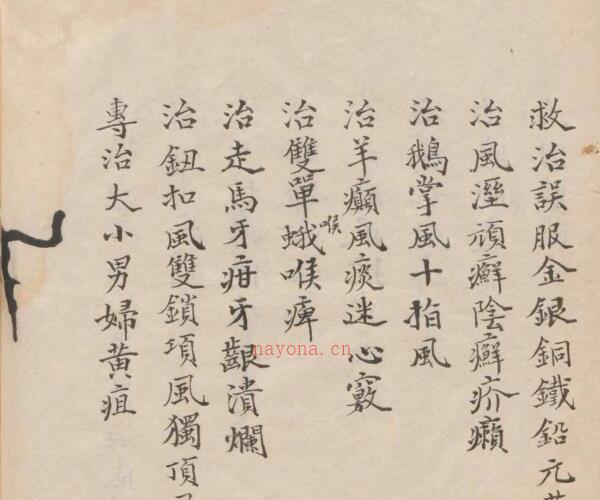 救治誤服金銀銅鐵鉛元
治風溼頑癬陰癬疥癩
治鵝掌風十指風
治羊癲風痰迷心竅
治雙單蛾喉痺
喉
治走馬牙疳牙齦潰爛
治鈕扣風雙鎖項風獨頂
專治大小男婦黃疸
nayona.cn